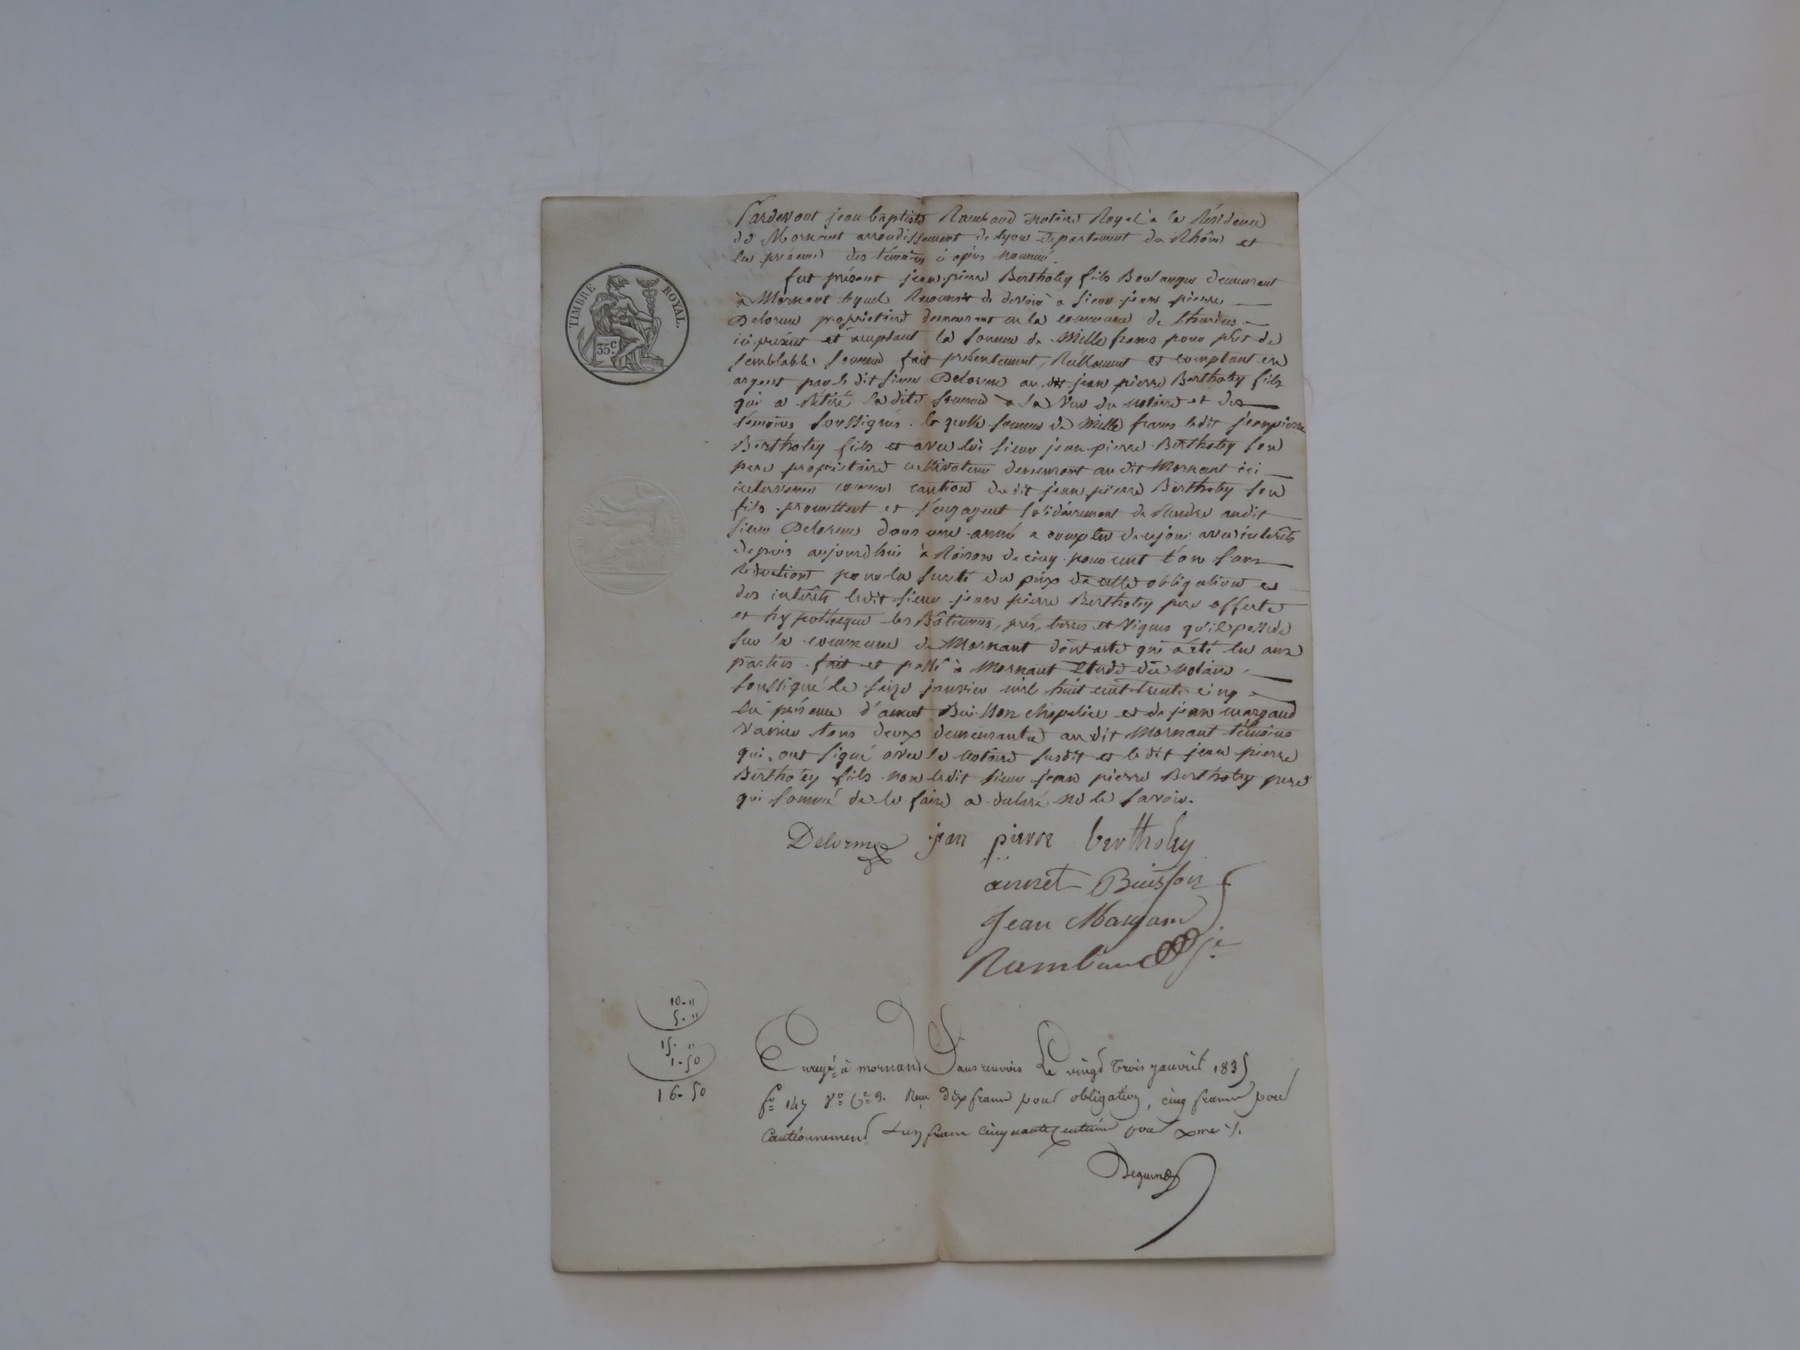 TIMBRE ROYAL.
35c
Pardevant jean baptiste Rambaud notaire Royal a la Résidence
de Mornant arrondissement de lyon département du Rhône et
en présence des témoins ci après nommés.
fut présent jean pierre Bertholey fils Boulanger demeurant
à Mornant lequel Reconnoit de devoir a sieur jean pierre
Delorme propriétaire demeurant en la commune de
ici présent et acceptant la somme de Mille francs pour prêt de
semblable somme fait présentement, Réellement et comptant en
argent par le dit sieur Delorme au dit jean pierre Bertholey fils
qui a retiré ladite somme a la Vue du notaire et des
témoins soussignés. la quelle somme de Mille francs ledit jean pierre
Bertholey fils et avec lui sieur jean pierre Bertholey son
pere propriétaire cultivateur demeurant au dit Mornant ici
intervenu comme caution du dit jean pierre Bertholey son
fils promettent et s'engagent solidairement de Rendre audit
sieur Delorme dans une année a compter de ce jour avec intérêts
depuis aujourd'hui à Raison de cinq pour cent l'an sans
Réduction pour la sureté du prix de cette obligation et
des intérêts ledit sieur jean pierre Bertholey pere affecte
et hypothèque les Bâtiments, prés, terres et Vignes qu'il possède
sur la commune de Mornant dont acte qui a été lu aux
parties. fait et passé à Mornant Etude du notaire
soussigné le seize janvier mil huit cent trente cinq
en présence d'annet Buisson chapelier et de jean margand
Vanier tous deux demeurants au dit Mornant témoins
qui ont signé avec le notaire susdit et le dit jean pierre
Bertholey fils non ledit sieur jean pierre Bertholey pere
qui sommé de le faire a déclaré ne le savoir.
Delorme jean pierre bertholey
annet Buisson
Jean Margand
Rambaud
10 - "
5 - "
15 - "
1 - 50
16 - 50
Enregé à mornant Sans renvois Le vingt trois janvier 1835
fo 147 Vo Ce 9. Reçu dix francs pour obligation, cinq francs pour
Cautionnement & un franc cinquante centimes pour